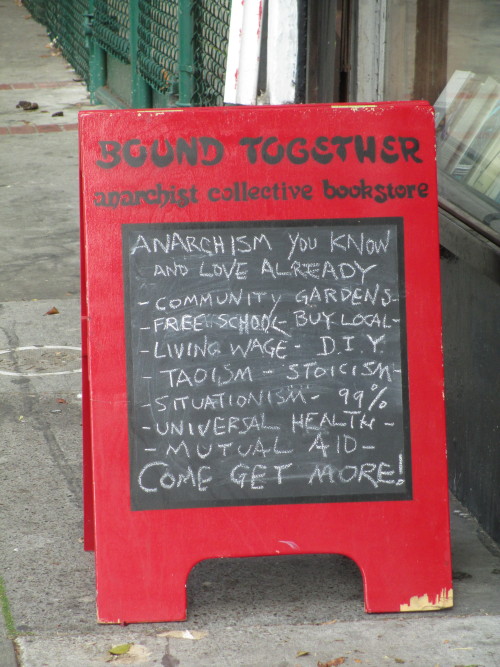 BOUND TOGETHER
anarchist collective bookstore
ANARCHISM YOU KNOW
AND LOVE ALREADY
- COMMUNITY GARDENS-
- FREE SCHOOL BUY LOCAL-
- LIVING WAGE - D.I.Y
- TAOISM - STOICISM-
- SITUATIONISM - 99%
- UNIVERSAL HEALTH -
- MUTUAL AID -
COME GET MORE!